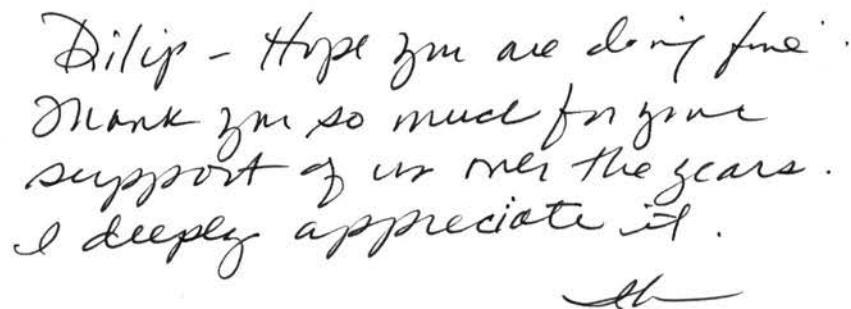 Dilip - Hope you are doing fine.
Thank you so much for your
support of us over the years.
I deeply appreciate it.